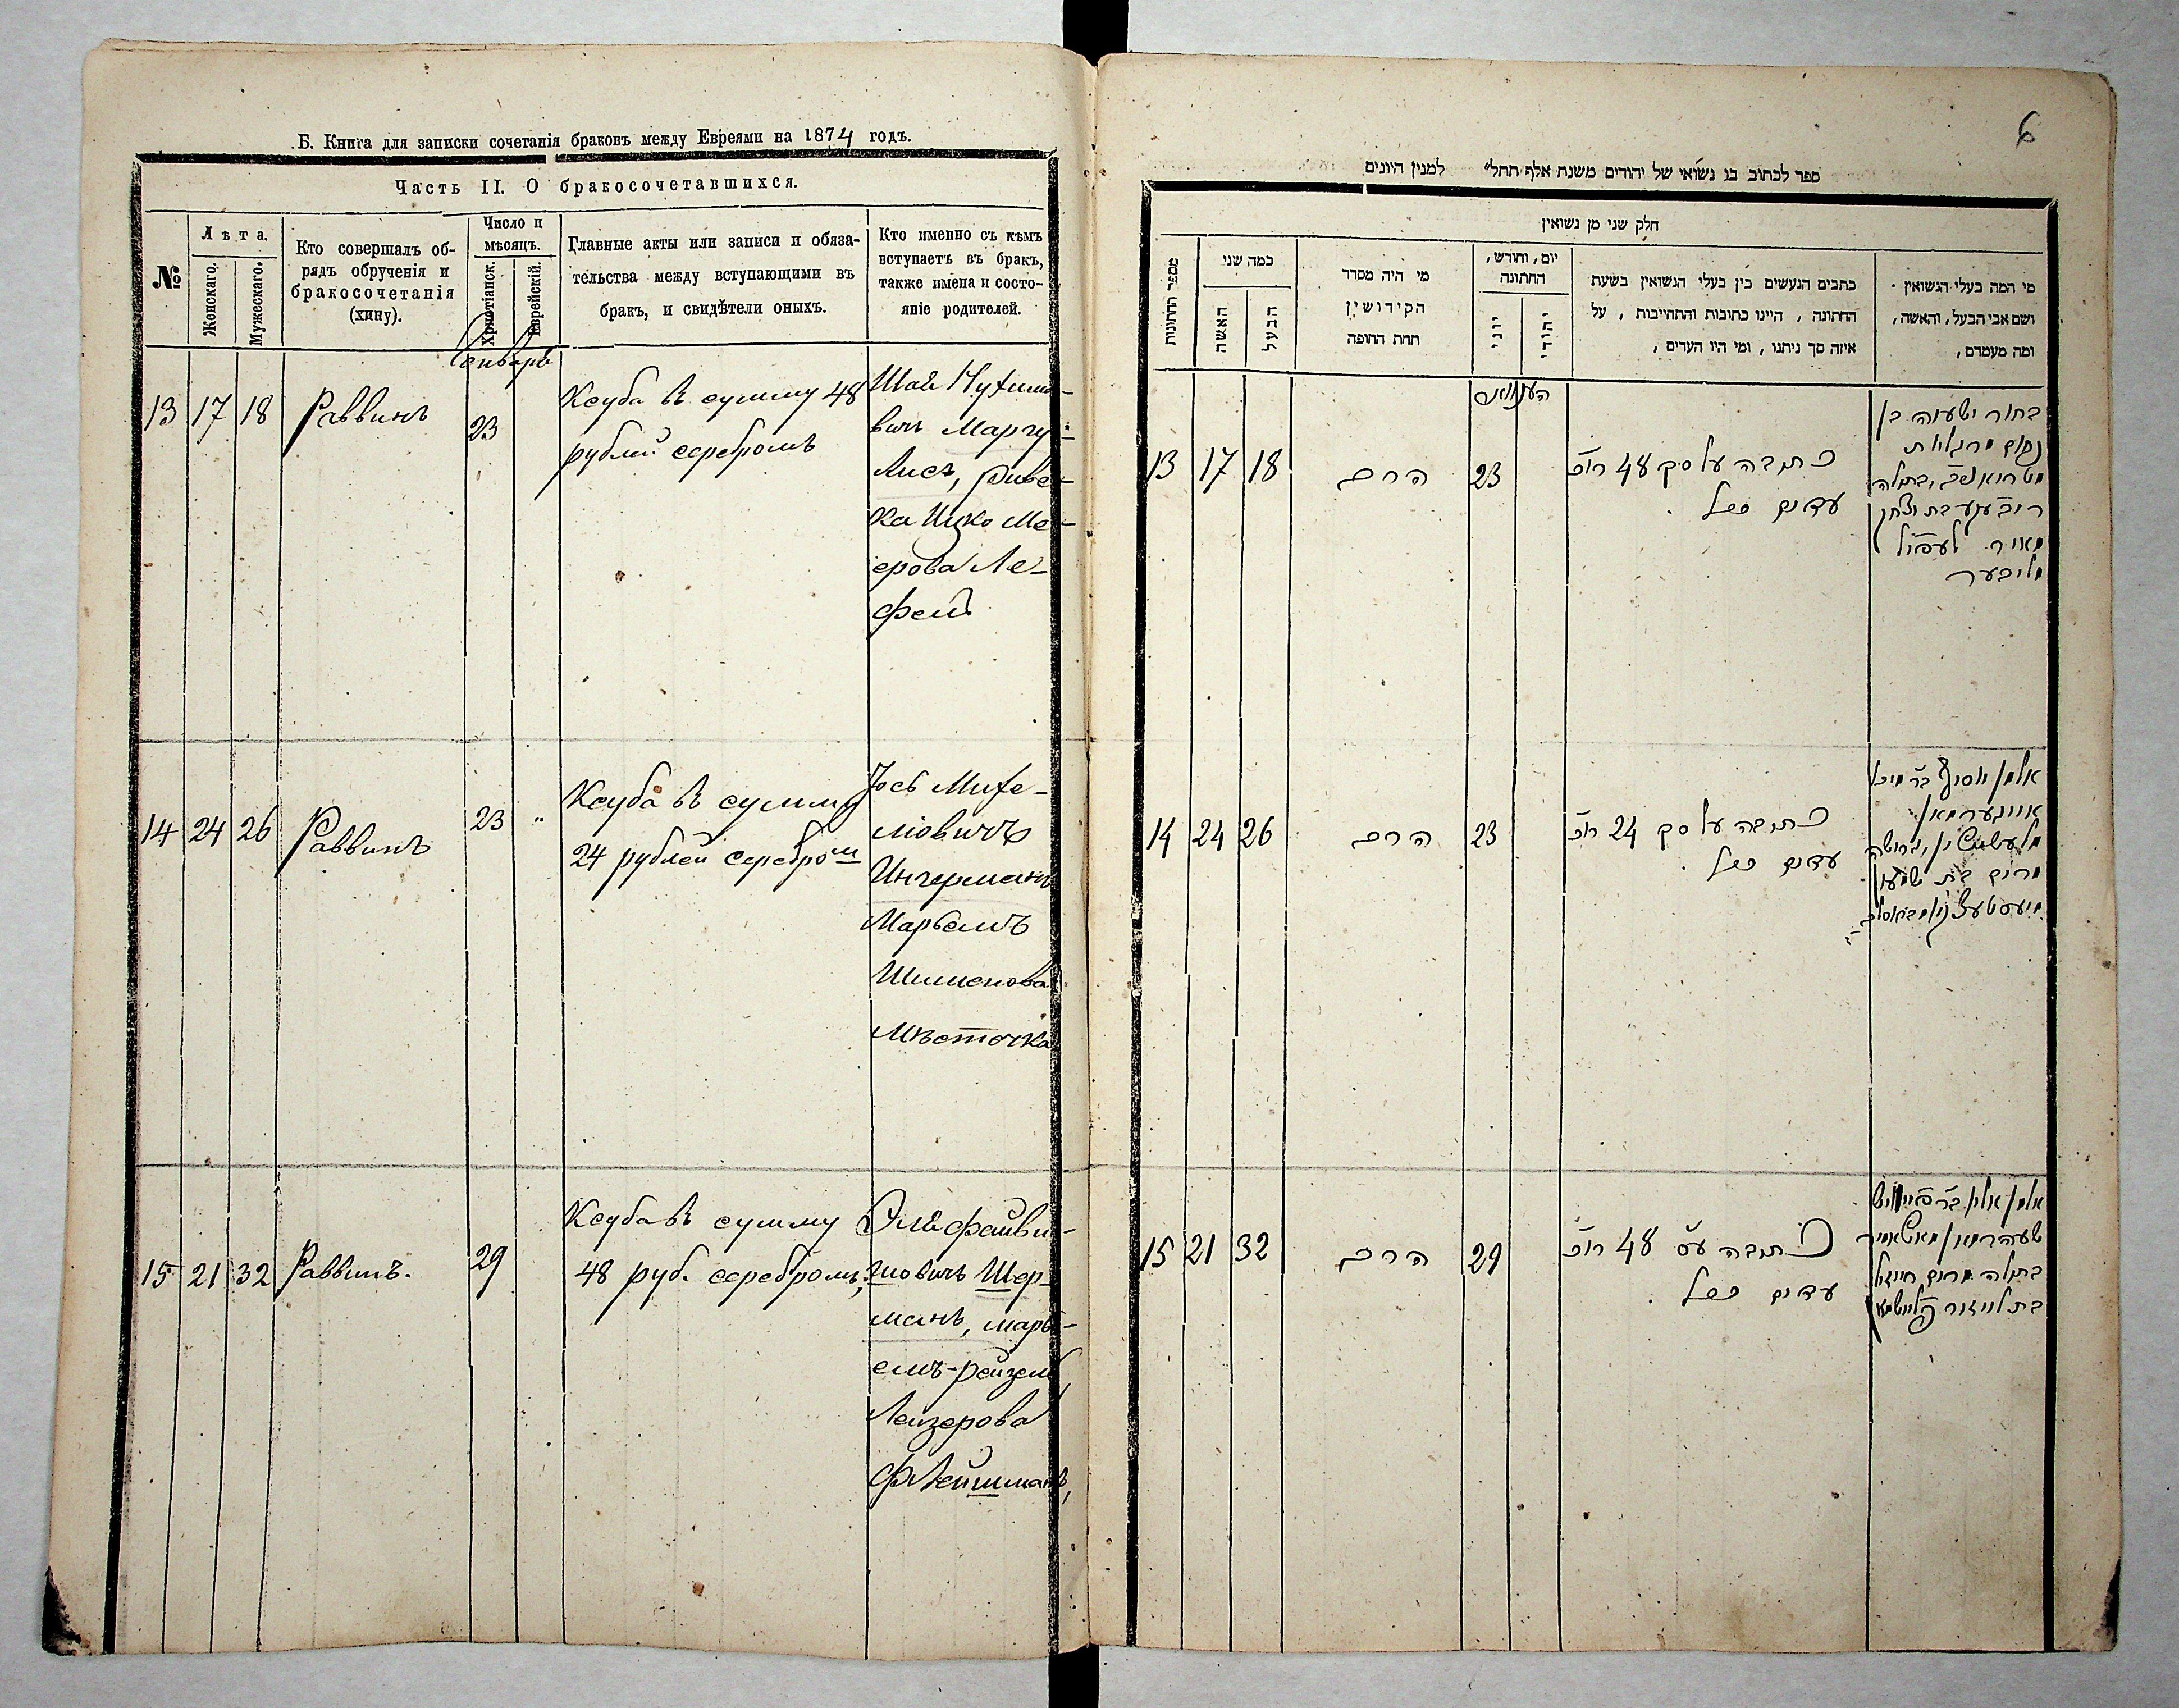 Б. Книга для записки сочетанія браковъ между Евреями на 1874 годъ.
Часть II. О бракосочетавшихся.
№
Лѣта.
Женскаго.
Мужескаго.
Кто совершалъ об-
рядъ обрученія и
бракосочетанія
(хину).
Число и
мѣсяцъ.
Христіанск.
Еврейскій.
Главные акты или записи и обяза-
тельства между вступающими въ
бракъ, и свидѣтели оныхъ.
Кто именно съ кѣмъ
вступаетъ въ бракъ,
также имена и состо-
яніе родителей.
Январь
13 17 18 Раввинъ 23
Ксуба въ сумму 48
рублей серебромъ
Шая Нухимо-
вичъ Маргу-
лисъ, Риве-
ка Ицко Ме-
ерова Ле-
фель
14 24 26 Раввинъ 23 "
Ксуба въ сумму
24 рублей серебром
Іось Михе-
ліовичъ
Ингерманъ
Марьемъ
Шименова
Мѣсточка
15 21 32 Раввинъ. 29
Ксуба въ сумму
48 руб. серебромъ,
Эля Фаиви-
шовичъ Шер-
манъ, Марь-
емъ-Рейзель,
Лейзерова
Флейшманъ,
6
ספר לכתוב בו נשואי של יהודים משנת אלף תתל״ למנין היונים
חלק שני מן נשואין
מספר החתונות
כמה שני
האשה
הבעל
מי היה מסדר
הקידושין
תחת החופה
יום, וחודש,
החתונה
יוני
יהודי
כתבים הנעשים בין בעלי הנשואין בשעת
החתונה, היינו כתובות והתחייבות, על
איזה סך ניתנו, ומי היו העדים,
מי המה בעלי הנשואין
ושם אבי הבעל, והאשה,
ומה מעמדם,
13 17 18 הרב 23
כתובה על סך 48 רו״כ
עדים כנ״ל
בחור ישעיה בן
נחום מרגליות
בת יצחק
מאיר לעפיל
14 24 26 הרב 23
כתובה על סך 24 רו״כ
עדים כנ״ל
אלמן יוסיף ב״ר מיכל
אינגערמאן
מרים בת שמעון
15 21 32 הרב 29
כתובה ע״ס 48 רו״כ
עדים כנ״ל
אלמן אליה ב״ר פייוויש
שערמאן
בתולה מרים רייזיל
בת לייזור פליישמאן